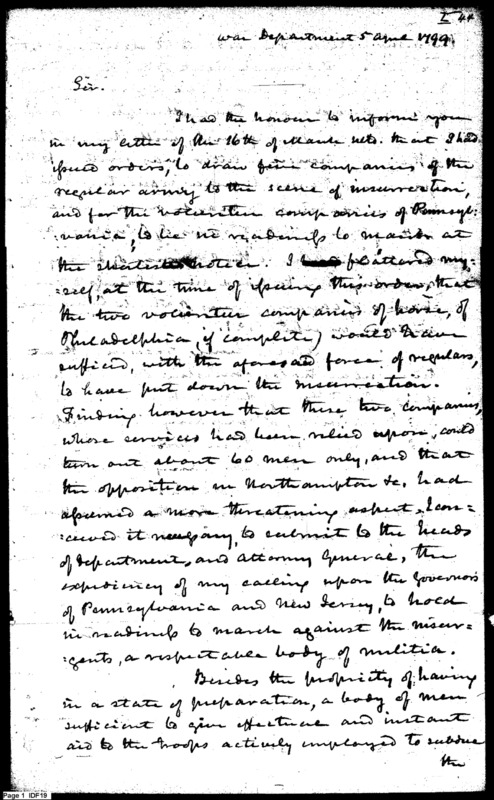 I 44
War Department 5 april 1799.
Sir.
I had the honour to inform you
in my letter of the 16th of March ulto. that I had
issued orders, to draw five companies of the
regular army to the scene of insurrection,
and for the volunteer companies of Pennsyl-
-vania, to be in readiness to march at
the shortest notice. I flattered my-
-self, at the time of issuing this order, that
the two volunteer companies of horse, of
Philadelphia, (if complete) would have
sufficed, with the aforesaid force of regulars,
to have put down the insurrection.
Finding however that these two companies,
whose services had been relied upon, could
turn out about 60 men only, and that
the opposition in Northampton &c. had
assumed a more threatening aspect, I con-
-ceived it necessary, to submit to the heads
of department, and attorney General, the
expediency of my calling upon the Governors
of Pennsylvania and New Jersey, to hold
in readiness to march against the insur-
-gents, a respectable body of militia.
Besides the propriety of having
in a state of preparation, a body of men
sufficient to give effectual and instant
aid to the troops actively employed to subdue
the
Page 1 IDF19